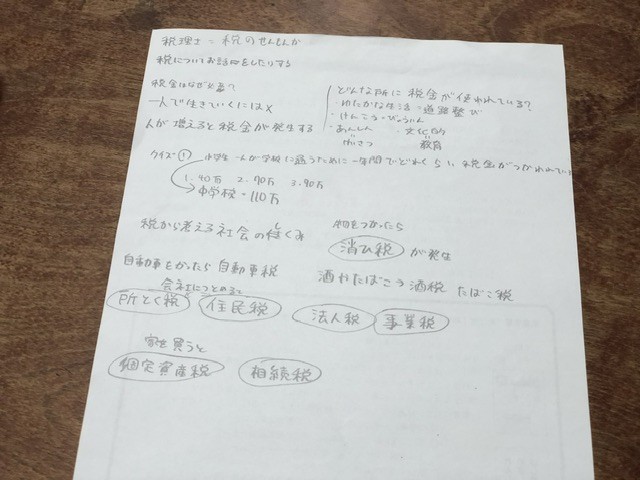 税理士 = 税のせんもんか
税についてお話をしたりする
税金はなぜ必要?
一人で生きていくには×
人が増えると税金が発生する
どんな所に税金が使われている?
・ゆたかな生活・道路整び
・けんこう・びょういん
・あんしん ・文化的
けいさつ 教育
クイズ① 小学生一人が学校に通うために一年間でどれくらい税金がつかわれてい
1.40万 2.70万 3.90万
中学校・110万
税から考える社会のしくみ
物をつかったら
消ひ税 が発生
自動車をかったら自動車税
酒やたばこう酒税 たばこ税
会社につとめると
所とく税 住民税 法人税 事業税
家を買うと
固定資産税 相続税